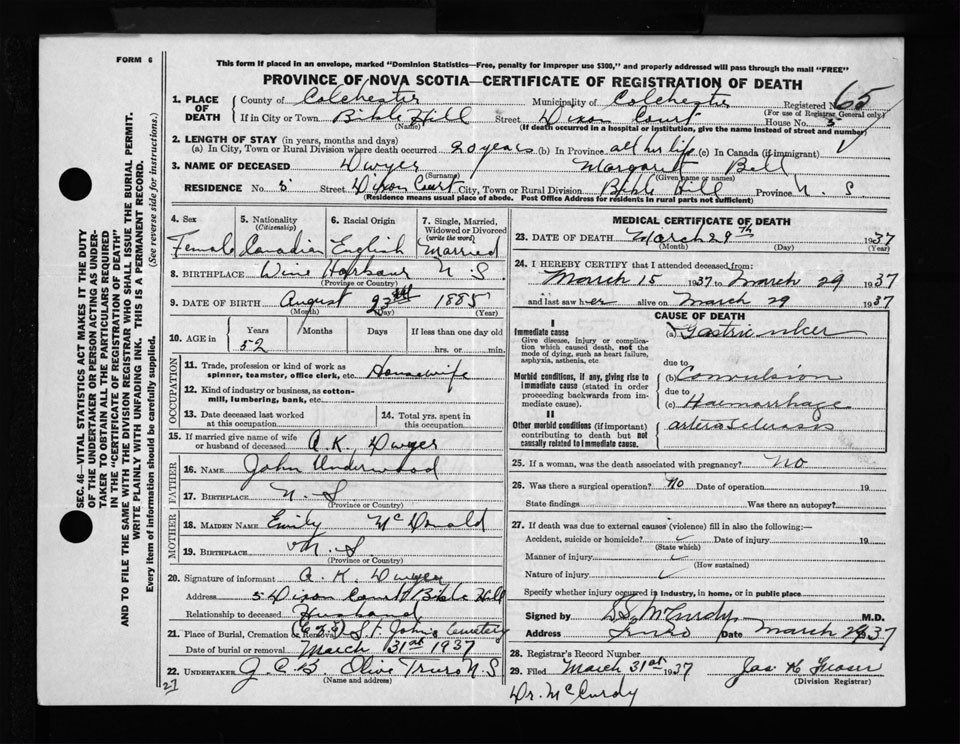 FORM 6
This form if placed in an envelope, marked "Dominion Statistics—Free, penalty for improper use $300," and properly addressed will pass through the mail "FREE"
PROVINCE OF NOVA SCOTIA—CERTIFICATE OF REGISTRATION OF DEATH
1. PLACE OF DEATH County of Colchester Municipality of Colchester Registered No. 65
(For use of Registrar General only)
If in City or Town Bible Hill Street Dixon Court House No. 5
(Name) (If death occurred in a hospital or institution, give the name instead of street and number)
2. LENGTH OF STAY (in years, months and days)
(a) In City, Town or Rural Division where death occurred 20 years (b) In Province all her life (c) In Canada (if immigrant)
3. NAME OF DECEASED Dwyer Margaret Bell
(Surname) (Given name or names)
RESIDENCE No. 5 Street Dixon Court City, Town or Rural Division Bible Hill Province N. S
(Residence means usual place of abode. Post Office Address for residents in rural parts not sufficient)
4. Sex Female
5. Nationality (Citizenship) Canadian
6. Racial Origin English
7. Single, Married, Widowed or Divorced (write the word) Married
8. BIRTHPLACE Wine Harbour N. S.
(Province or Country)
9. DATE OF BIRTH August 1885
(Month) (Day) (Year)
10. AGE in Years 52 Months Days If less than one day old hrs. or min.
OCCUPATION
11. Trade, profession or kind of work as spinner, teamster, office clerk, etc. Housewife
12. Kind of industry or business, as cotton-mill, lumbering, bank, etc.
13. Date deceased last worked at this occupation
14. Total yrs. spent in this occupation
15. If married give name of wife or husband of deceased A. K. Dwyer
FATHER
16. NAME John Underwood
17. BIRTHPLACE N. S.
(Province or Country)
MOTHER
18. MAIDEN NAME Emily McDonald
19. BIRTHPLACE N. S.
(Province or Country)
20. Signature of informant A. K. Dwyer
Address 5 Dixon Court Bible Hill
Relationship to deceased Husband
21. Place of Burial, Cremation or Removal St. John's Cemetery
Date of burial or removal March 31st 1937
22. UNDERTAKER J. C. B. Olive Truro N S
(Name and address)
27
MEDICAL CERTIFICATE OF DEATH
23. DATE OF DEATH March 29th 1937
(Month) (Day)
24. I HEREBY CERTIFY that I attended deceased from:
March 15 1937 to March 29 1937
and last saw her alive on March 29 1937
CAUSE OF DEATH
I
Immediate cause (a) Gastric ulcer
Give disease, injury or complication which caused death, not the mode of dying, such as heart failure, asphyxia, asthenia, etc.
due to
Morbid conditions, if any, giving rise to immediate cause (stated in order proceeding backwards from immediate). (b) Convulsion
due to
(c) Haemorrhage
II
Other morbid conditions (if important) contributing to death but not causally related to immediate cause. arterio sclerosis
25. If a woman, was the death associated with pregnancy? No
26. Was there a surgical operation? No Date of operation 19
State findings Was there an autopsy?
27. If death was due to external causes (violence) fill in also the following:—
Accident, suicide or homicide? Date of injury 19
(State which)
Manner of injury
(How sustained)
Nature of injury
Specify whether injury occurred in industry, in home, or in public place
Signed by S.S. McCurdy M.D.
Address Truro Date March 29 1937
28. Registrar's Record Number
29. Filed March 31st 1937 Jas H Fraser
(Division Registrar)
Dr. McCurdy
SEC. 46—VITAL STATISTICS ACT MAKES IT THE DUTY
OF THE UNDERTAKER OR PERSON ACTING AS UNDER-
TAKER TO OBTAIN ALL THE PARTICULARS REQUIRED
IN THE "CERTIFICATE OF REGISTRATION OF DEATH"
AND TO FILE THE SAME WITH THE DIVISION REGISTRAR WHO SHALL ISSUE THE BURIAL PERMIT.
WRITE PLAINLY WITH UNFADING INK. THIS IS A PERMANENT RECORD.
Every item of information should be carefully supplied. (See reverse side for instructions.)